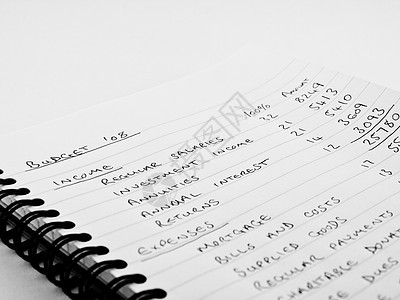 BUDGET '08
INCOME 100% Amount
REGULAR SALARIES 32 8249
INVESTMENT INCOME 5413
ANNUITIES 21 5410
ANNUAL INTEREST 14 3609
RETURNS 12 3093
25780
EXPENSES
MORTGAGE 17
BILLS AND COSTS 13
SUPPLIED GOODS
REGULAR PAYMENTS
CHARITABLE DONAT
DUES